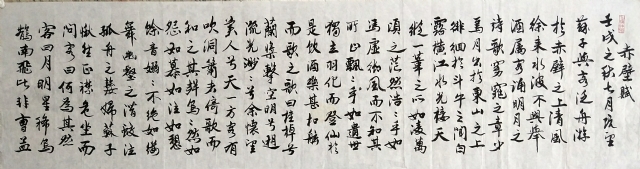 赤壁賦
壬戌之秋七月既望
蘇子與客泛舟遊
於赤壁之下清風
徐來水波不興舉
酒屬客誦明月之
詩歌窈窕之章少
焉月出於東山之上
徘徊於斗牛之間白
露橫江水光接天
縱一葦之所如凌萬
頃之茫然浩浩乎如
馮虛御風而不知其
所止飄飄乎如遺世
獨立羽化而登仙於
是飲酒樂甚扣舷
而歌之歌曰桂棹兮
蘭槳擊空明兮溯
流光渺渺兮余懷望
美人兮天一方客有
吹洞簫者倚歌而
和之其聲嗚嗚然如
怨如慕如泣如訴
餘音嫋嫋不絕如縷
舞幽壑之潛蛟泣
孤舟之嫠婦蘇子
愀然正襟危坐而
問客曰何為其然
客曰月明星稀烏
鵲南飛此非曹孟